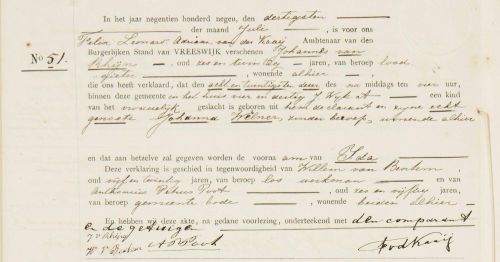 In het jaar negentien honderd negen, den dertigsten
der maand Julij, is voor ons
Felix Leonard Adriaan van der Kaaij Ambtenaar van den
Burgerlijken Stand van VREESWIJK verschenen Johannes van
No 51.
Rhijn, oud zes en twintig jaren, van beroep lood
gieter, wonende alhier
die ons heeft verklaard, dat den acht en twintigsten dezer des na middags ten vier uur,
binnen deze gemeente en in het huis vier en dertig, Wijk A een kind
van het vrouwelijk geslacht is geboren uit hem declarant en zijne echt
genoote Johanna Wilner, zonder beroep, wonende alhier
en dat aan hetzelve zal gegeven worden de voorna am van Ida
Deze verklaring is geschied in tegenwoordigheid van Willem van
oud vijf en twintig jaren, van beroep los werkman en van
Anthonius Petrus Poot, oud zes en vijftig jaren,
van beroep gemeente bode, wonende beiden alhier
En hebben wij deze akte, na gedane voorlezing, onderteekend met den comparant
en de getuigen
J v Rhijn
A P Poot
FvdKaaij